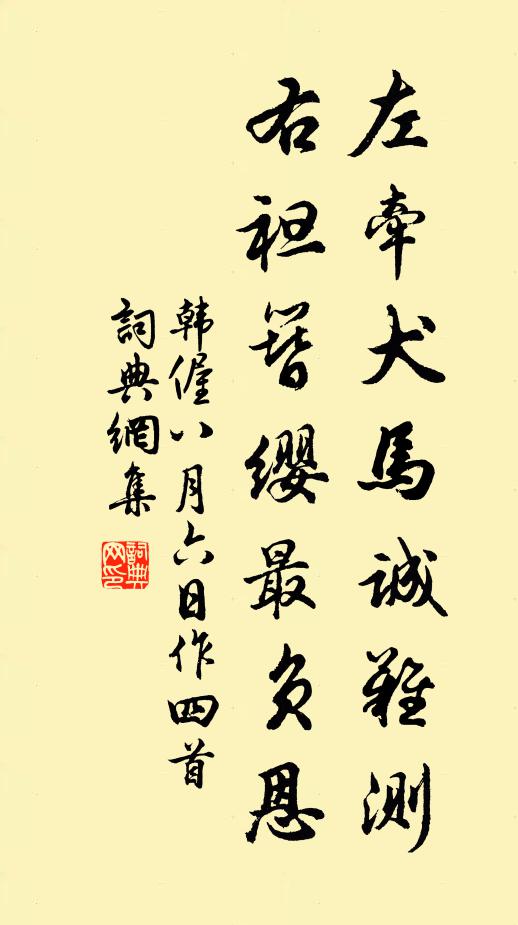 左牽犬馬誠難測
右袒簪纓最負恩
韩偓八月六日作四首
詞典網集
詞典网印